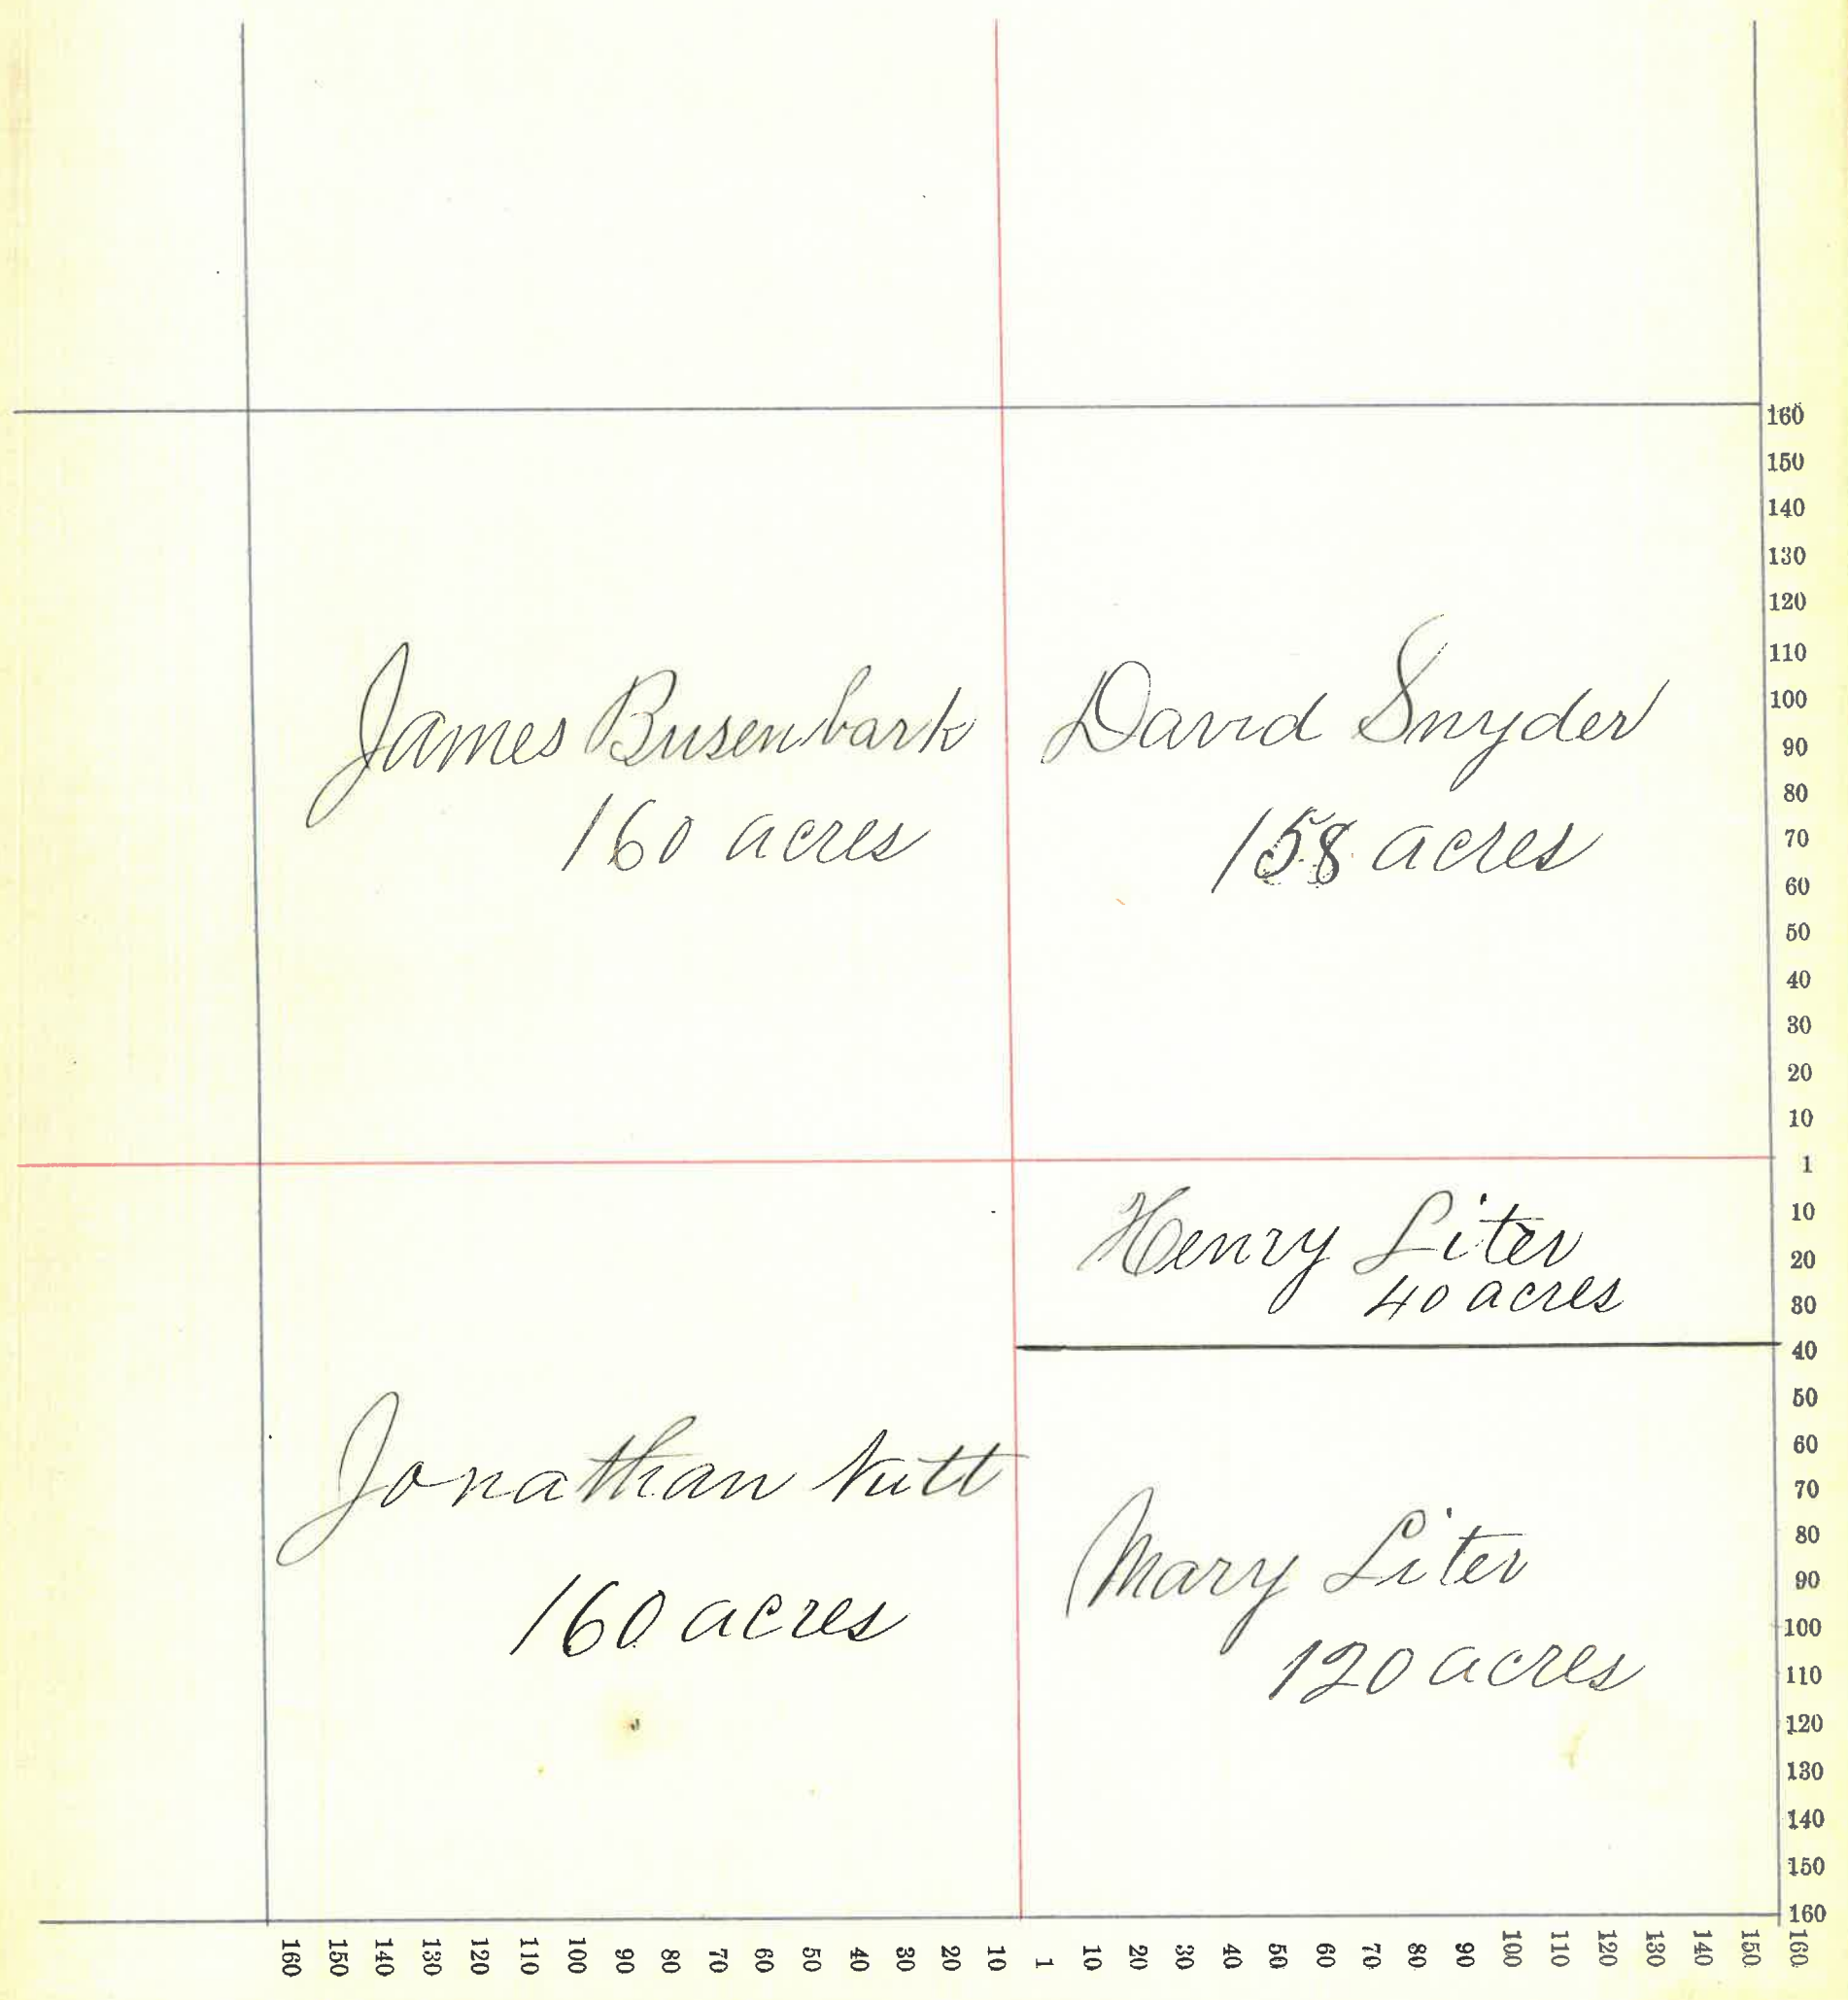 James Busenbark
160 acres
David Snyder
158 acres
Henry Liter
40 acres
Jonathan Nutt
160 acres
Mary Liter
120 acres
160
150
140
130
120
110
100
90
80
70
60
50
40
30
20
10
1
10
20
30
40
50
60
70
80
90
100
110
120
130
140
150
160
160 150 140 130 120 110 100 90 80 70 60 50 40 30 20 10 1 10 20 30 40 50 60 70 80 90 100 110 120 130 140 150 160